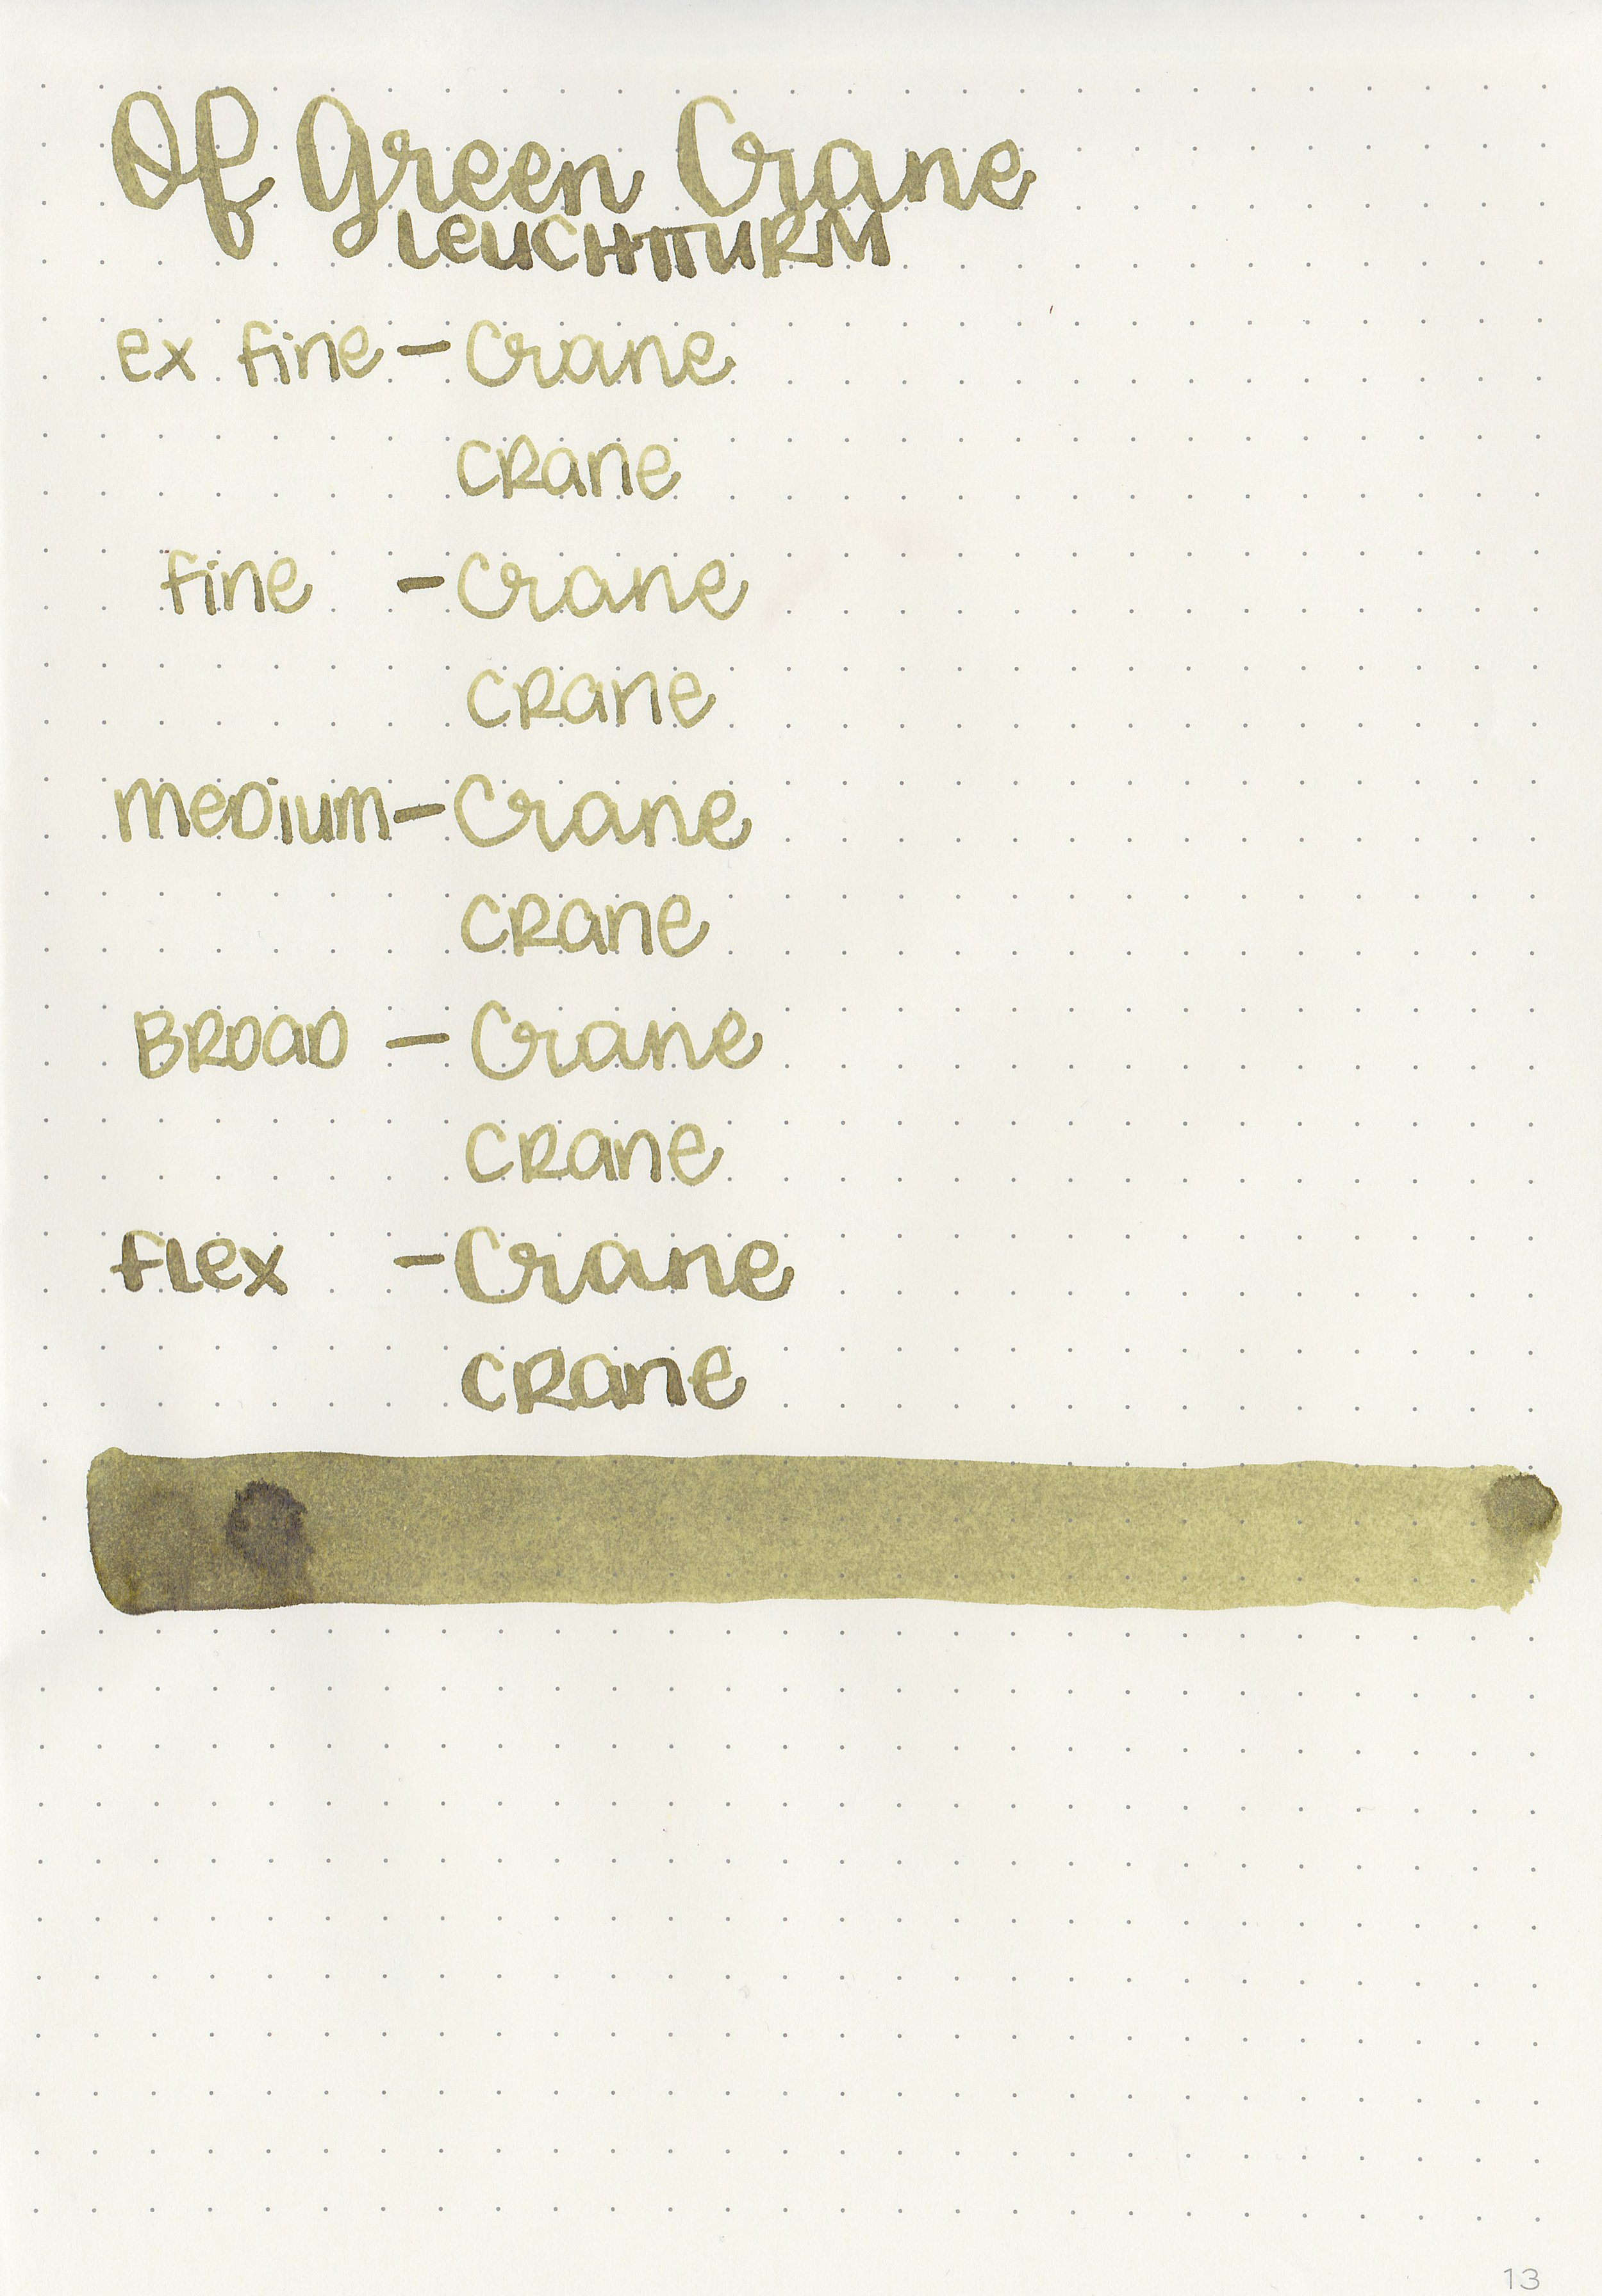 Of Green Crane
LEUCHTTURM
ex fine - Crane
CRane
fine - Crane
CRane
meDium - Crane
CRane
BROaD - Crane
CRane
fLex - Crane
CRane
13